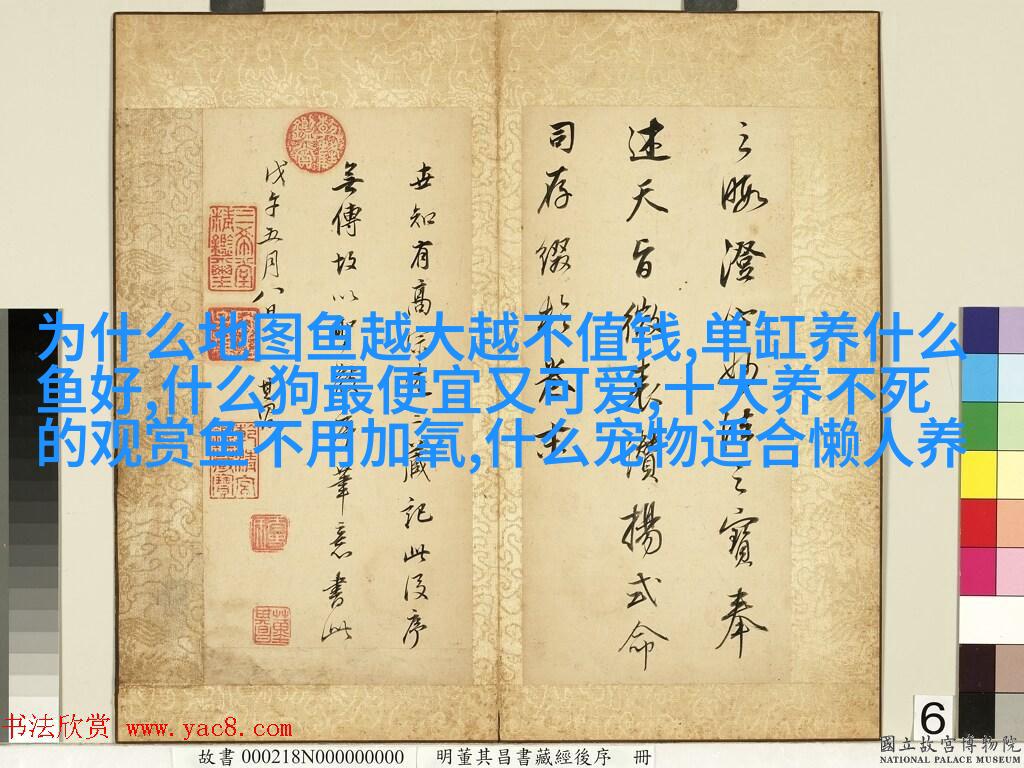 之暇澄心妙法之寶奉
述天旨微表讚揚式命
司存綴於卷末
世知有高宗三藏記此後序
無傳故以筆意書此
戊午五月八日
其昌
为什么地图鱼越大越不值钱,单缸养什么
鱼好,什么狗最便宜又可爱,十大养不死
的观赏鱼 不用加氧,什么宠物适合懒人养
书法欣赏 www.yac8.com
故書 000218N000000000 明董其昌書藏經後序 冊
6
國立故宮博物院
NATIONAL PALACE MUSEUM